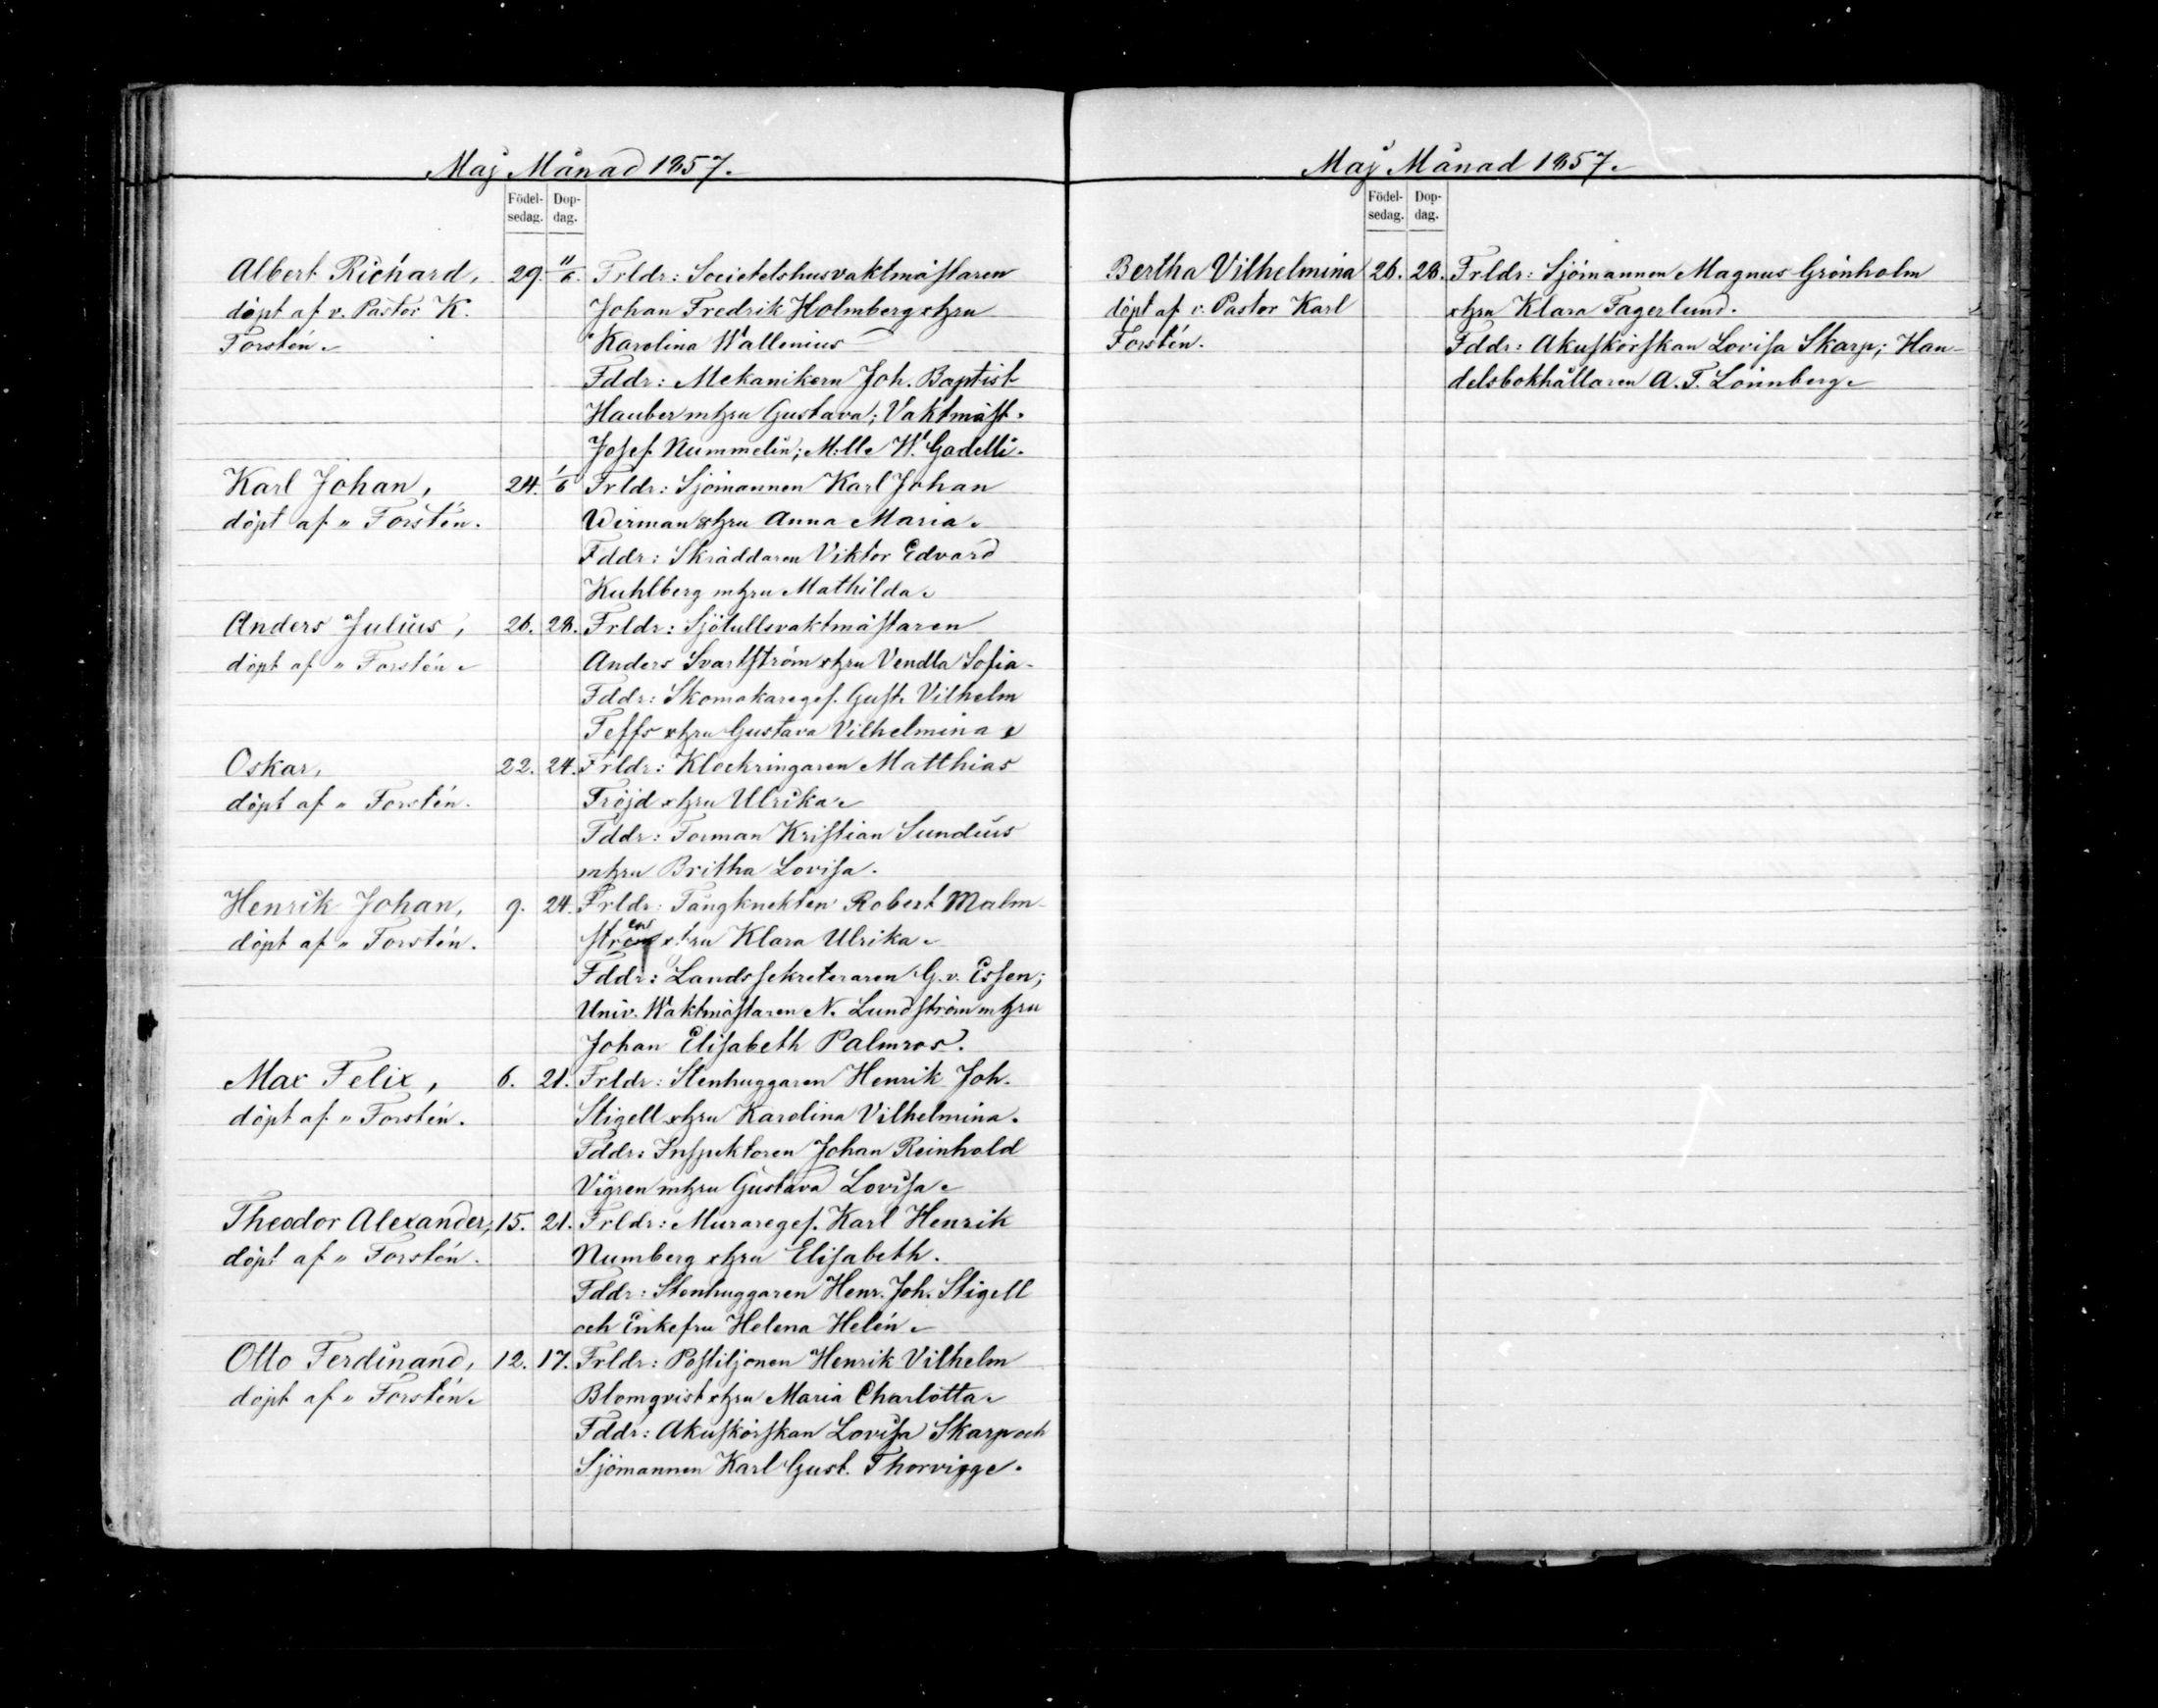 Maj Månad 1857.
Födel-sedag. Dop-dag.
Albert Richard, 29. 11/6. Frldr: Societetshusvaktmästaren
döpt af v. Pastor K. Johan Fredrik Holmberg o hru
Forstén. Karolina Wallenius
Fddr: Mekanikern Joh. Baptist
Hauber m hru Gustava; Vaktmäst.
Josef Nummelin; M:lle W. Gadelli.
Karl Johan, 24. 1/6 Frldr: Sjömannen Karl Johan
döpt af " Forstén. Wirman o hru Anna Maria.
Fddr: Skräddaren Viktor Edvard
Kuhlberg m hru Mathilda.
Anders Julius, 26. 28. Frldr: Sjötullsvaktmästaren
döpt af " Forstén. Anders Svartström o hru Vendla Sofia.
Fddr: Skomakareges. Gust. Vilhelm
Teffs o hru Gustava Vilhelmina
Oskar, 22. 24. Frldr: Klockringaren Matthias
döpt af " Forstén. Fröjd o hru Ulrika.
Fddr: Forman Kristian Sundius
m hru Britha Lovisa.
Henrik Johan, 9. 24. Frldr: Fångknekten Robert Malm-
döpt af " Forstén. strön o hru Klara Ulrika.
Fddr: Landssekreteraren G. v. Essen;
Univ. Waktmästaren N. Lundström m hru
Johan Elisabeth Palmros.
Max Felix, 6. 21. Frldr: Stenhuggaren Henrik Joh.
döpt af " Forstén. Stigell o hru Karolina Vilhelmina.
Fddr: Inspektoren Johan Reinhold
Vigren m hru Gustava Lovisa.
Theodor Alexander, 15. 21. Frldr: Murareges. Karl Henrik
döpt af " Forstén. Numberg o hru Elisabeth.
Fddr: Stenhuggaren Henr. Joh. Stigell
och Enkefru Helena Helén.
Otto Ferdinand, 12. 17. Frldr: Postiljonen Henrik Vilhelm
döpt af " Forstén. Blomqvist o hru Maria Charlotta.
Fddr: Akuskörskan Lovisa Skarp och
Sjömannen Karl Gust. Thorvigge.
Maj Månad 1857.
Födel-sedag. Dop-dag.
Bertha Vilhelmina 26. 28. Frldr: Sjömannen Magnus Grönholm
döpt af v. Pastor Karl o hru Klara Fagerlund.
Forstén. Fddr: Akuskörskan Lovisa Skarp; Han-
delsbokhållaren A. F. Lönnberg.